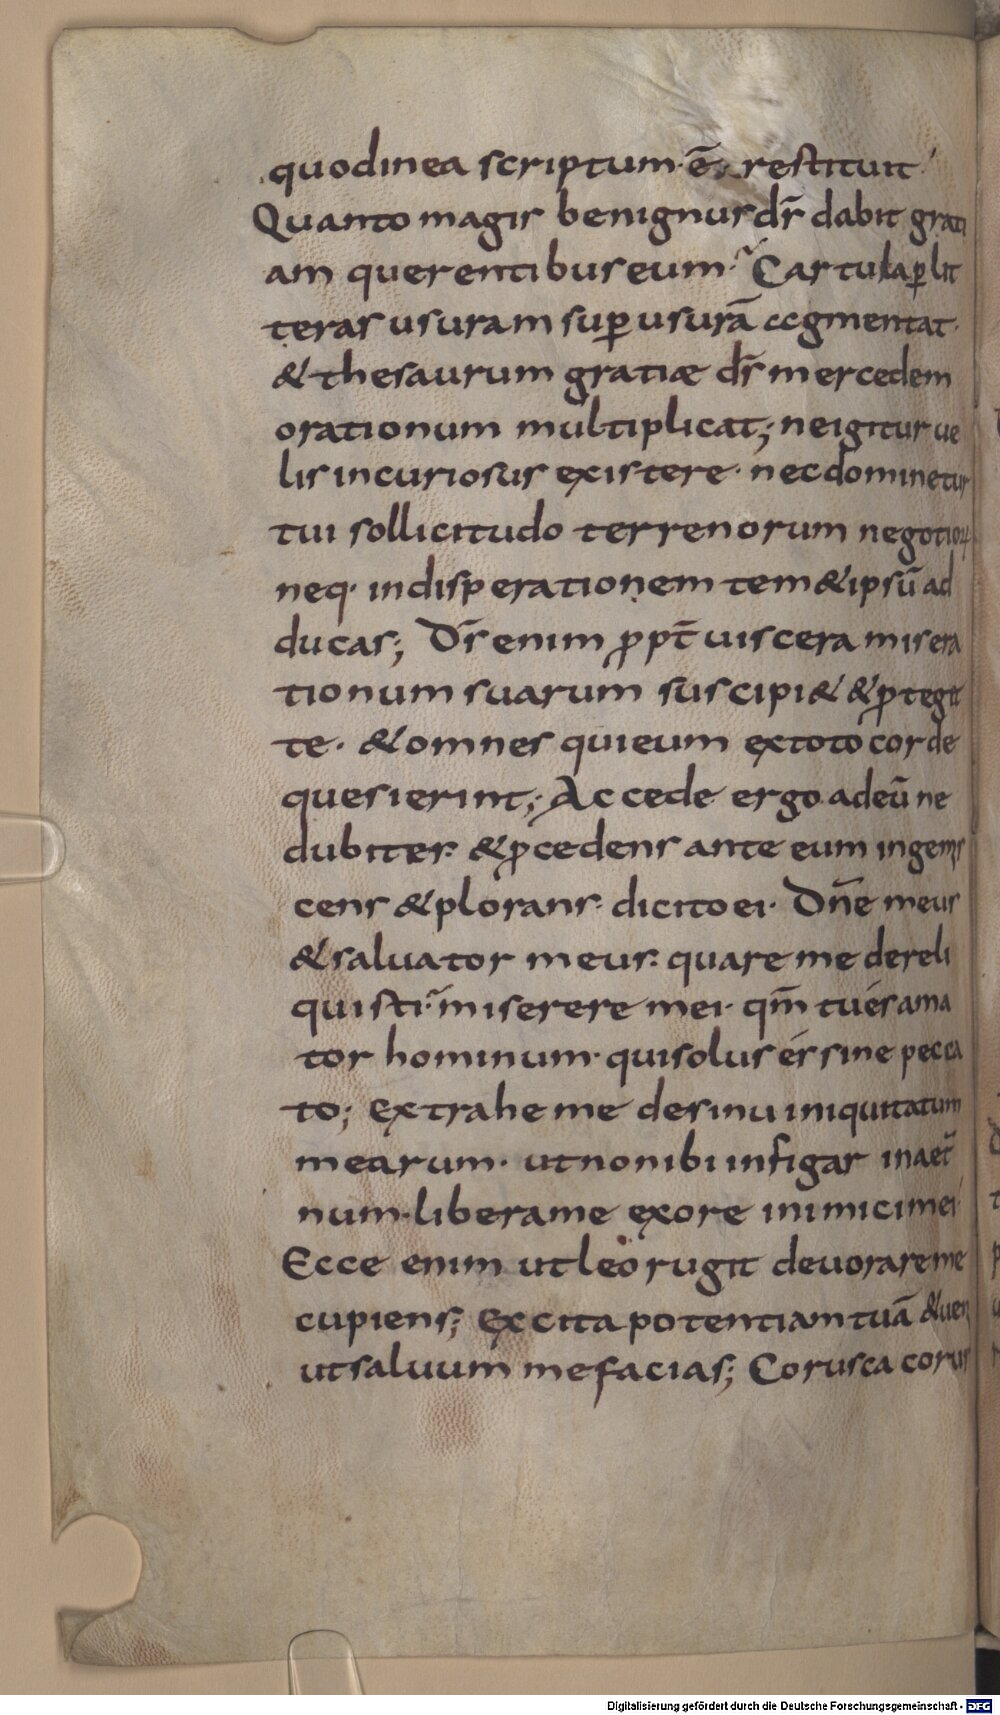 quodinea scriptum· ē· restituit
Quanto magis benignus dr̄ dabit grati
am querentibus eum· Cartula p̲ lit
teras usuram sup̲ usurā agmentat·
& thesaurum gratiæ dr̄ mercedem
orationum multiplicat; ne igitur ue
lis incuriosus existere· nec dominetur
tui sollicitudo terrenorum negotioꝝ
neq· indisperationem tem&ipsū ad
ducas; Dr̄ enim ꝓpt̄ uiscera misera
tionum suarum suscipi& &ꝓtegit
te· & omnes qui eum ex toto corde
quesierint; Accede ergo ad eū ne
dubites· &ꝓcedens ante eum ingemis
cens & plorans· dicito ei· Dn̄e meus
& saluator meus· quare me dereli
quisti· miserere mei· qm̄ tu és ama
tor hominum· qui solus és sine pecca
to; Extrahe me de sinu iniquitatum
mearum· ut non ibi infigar in aet̄
num· libera me ex ore inimici mei·
Ecce enim ut leo rugit deuorare me
cupiens; Excita potentiam tuā & ueni
ut saluum me facias; Corusca corus
Digitalisierung gefördert durch die Deutsche Forschungsgemeinschaft - DFG